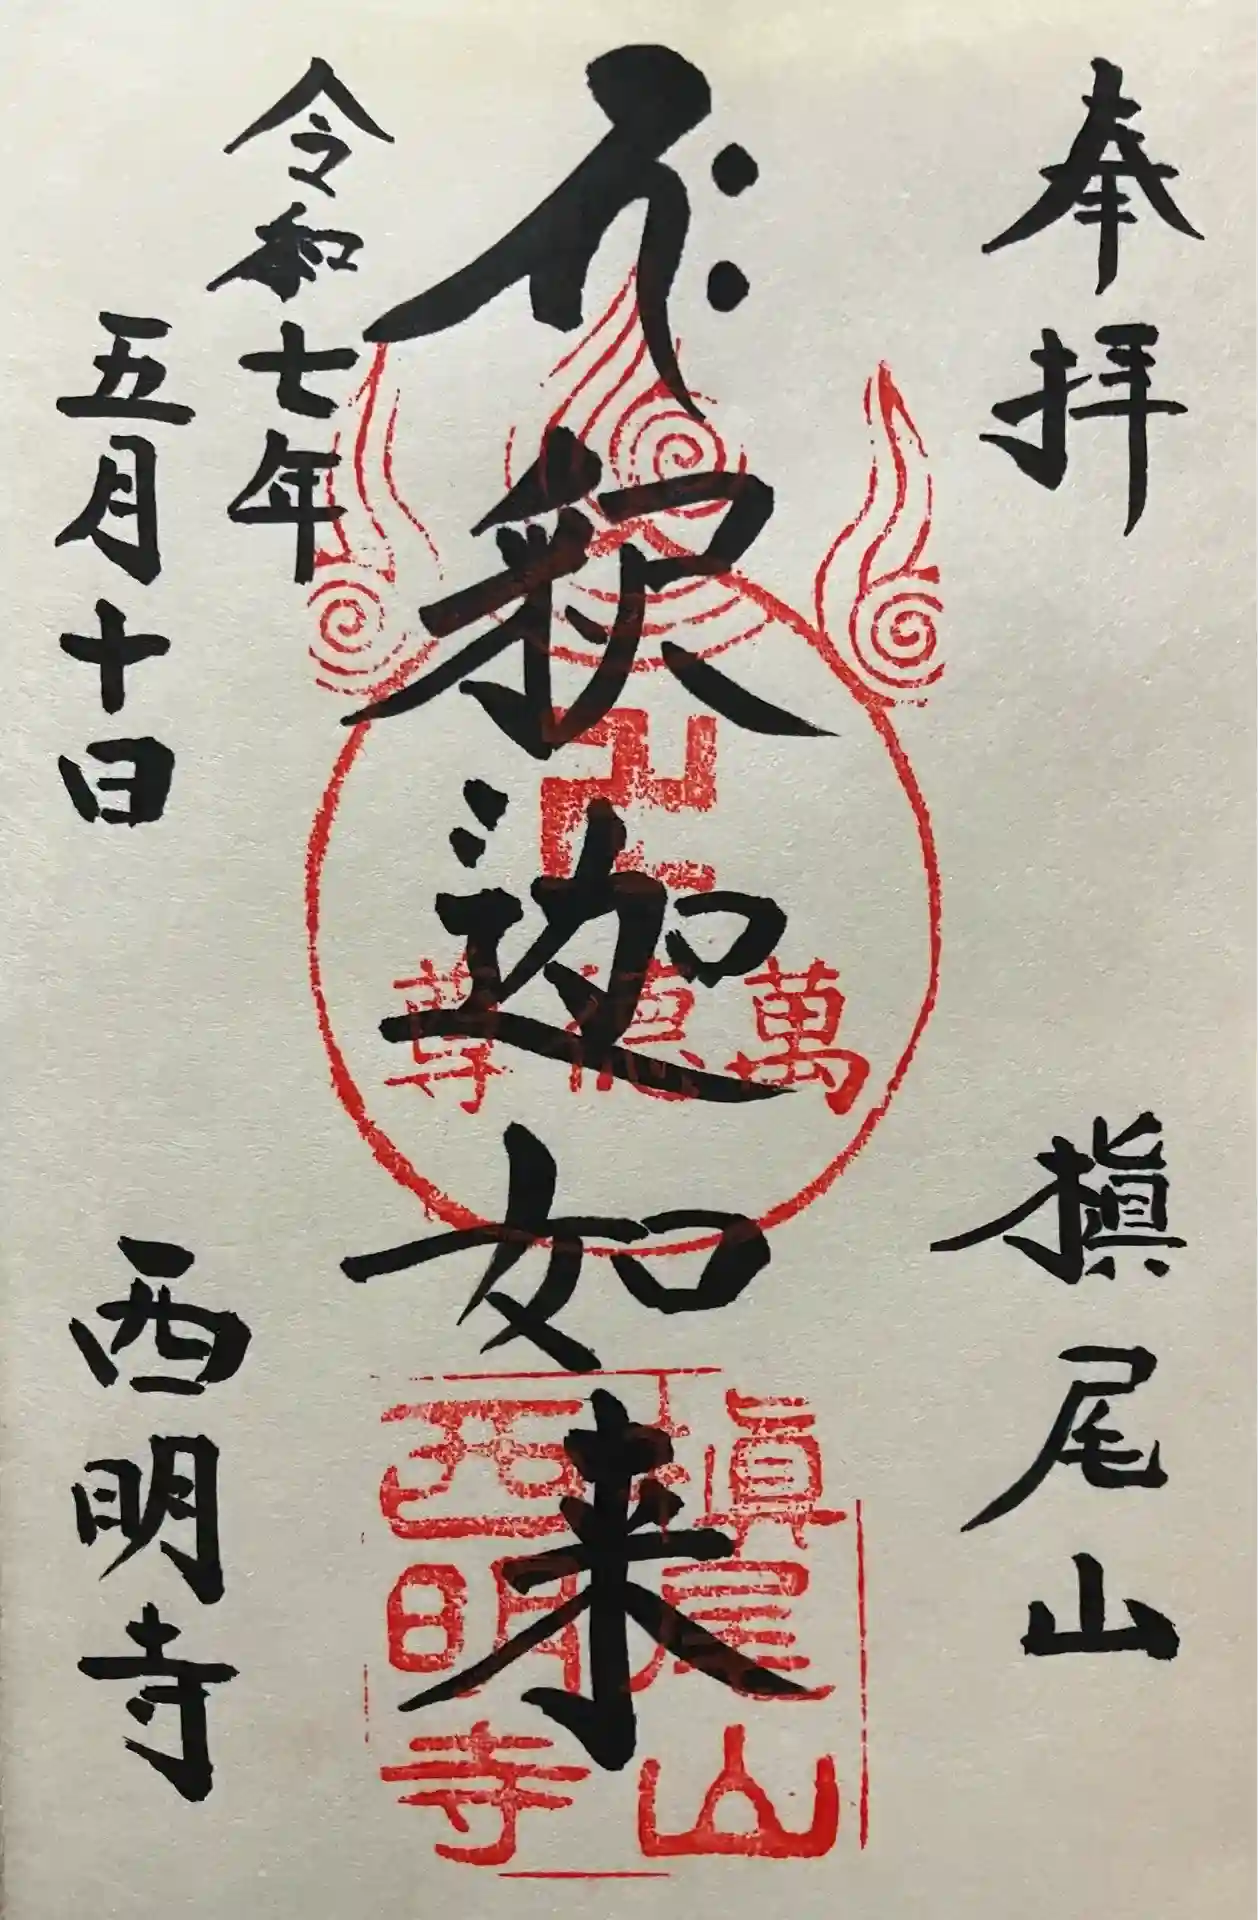 奉拝
槇尾山
𑖥𑖾
釈迦如来
卍
萬徳尊
槇尾山
西明寺
令和七年
五月十日
西明寺